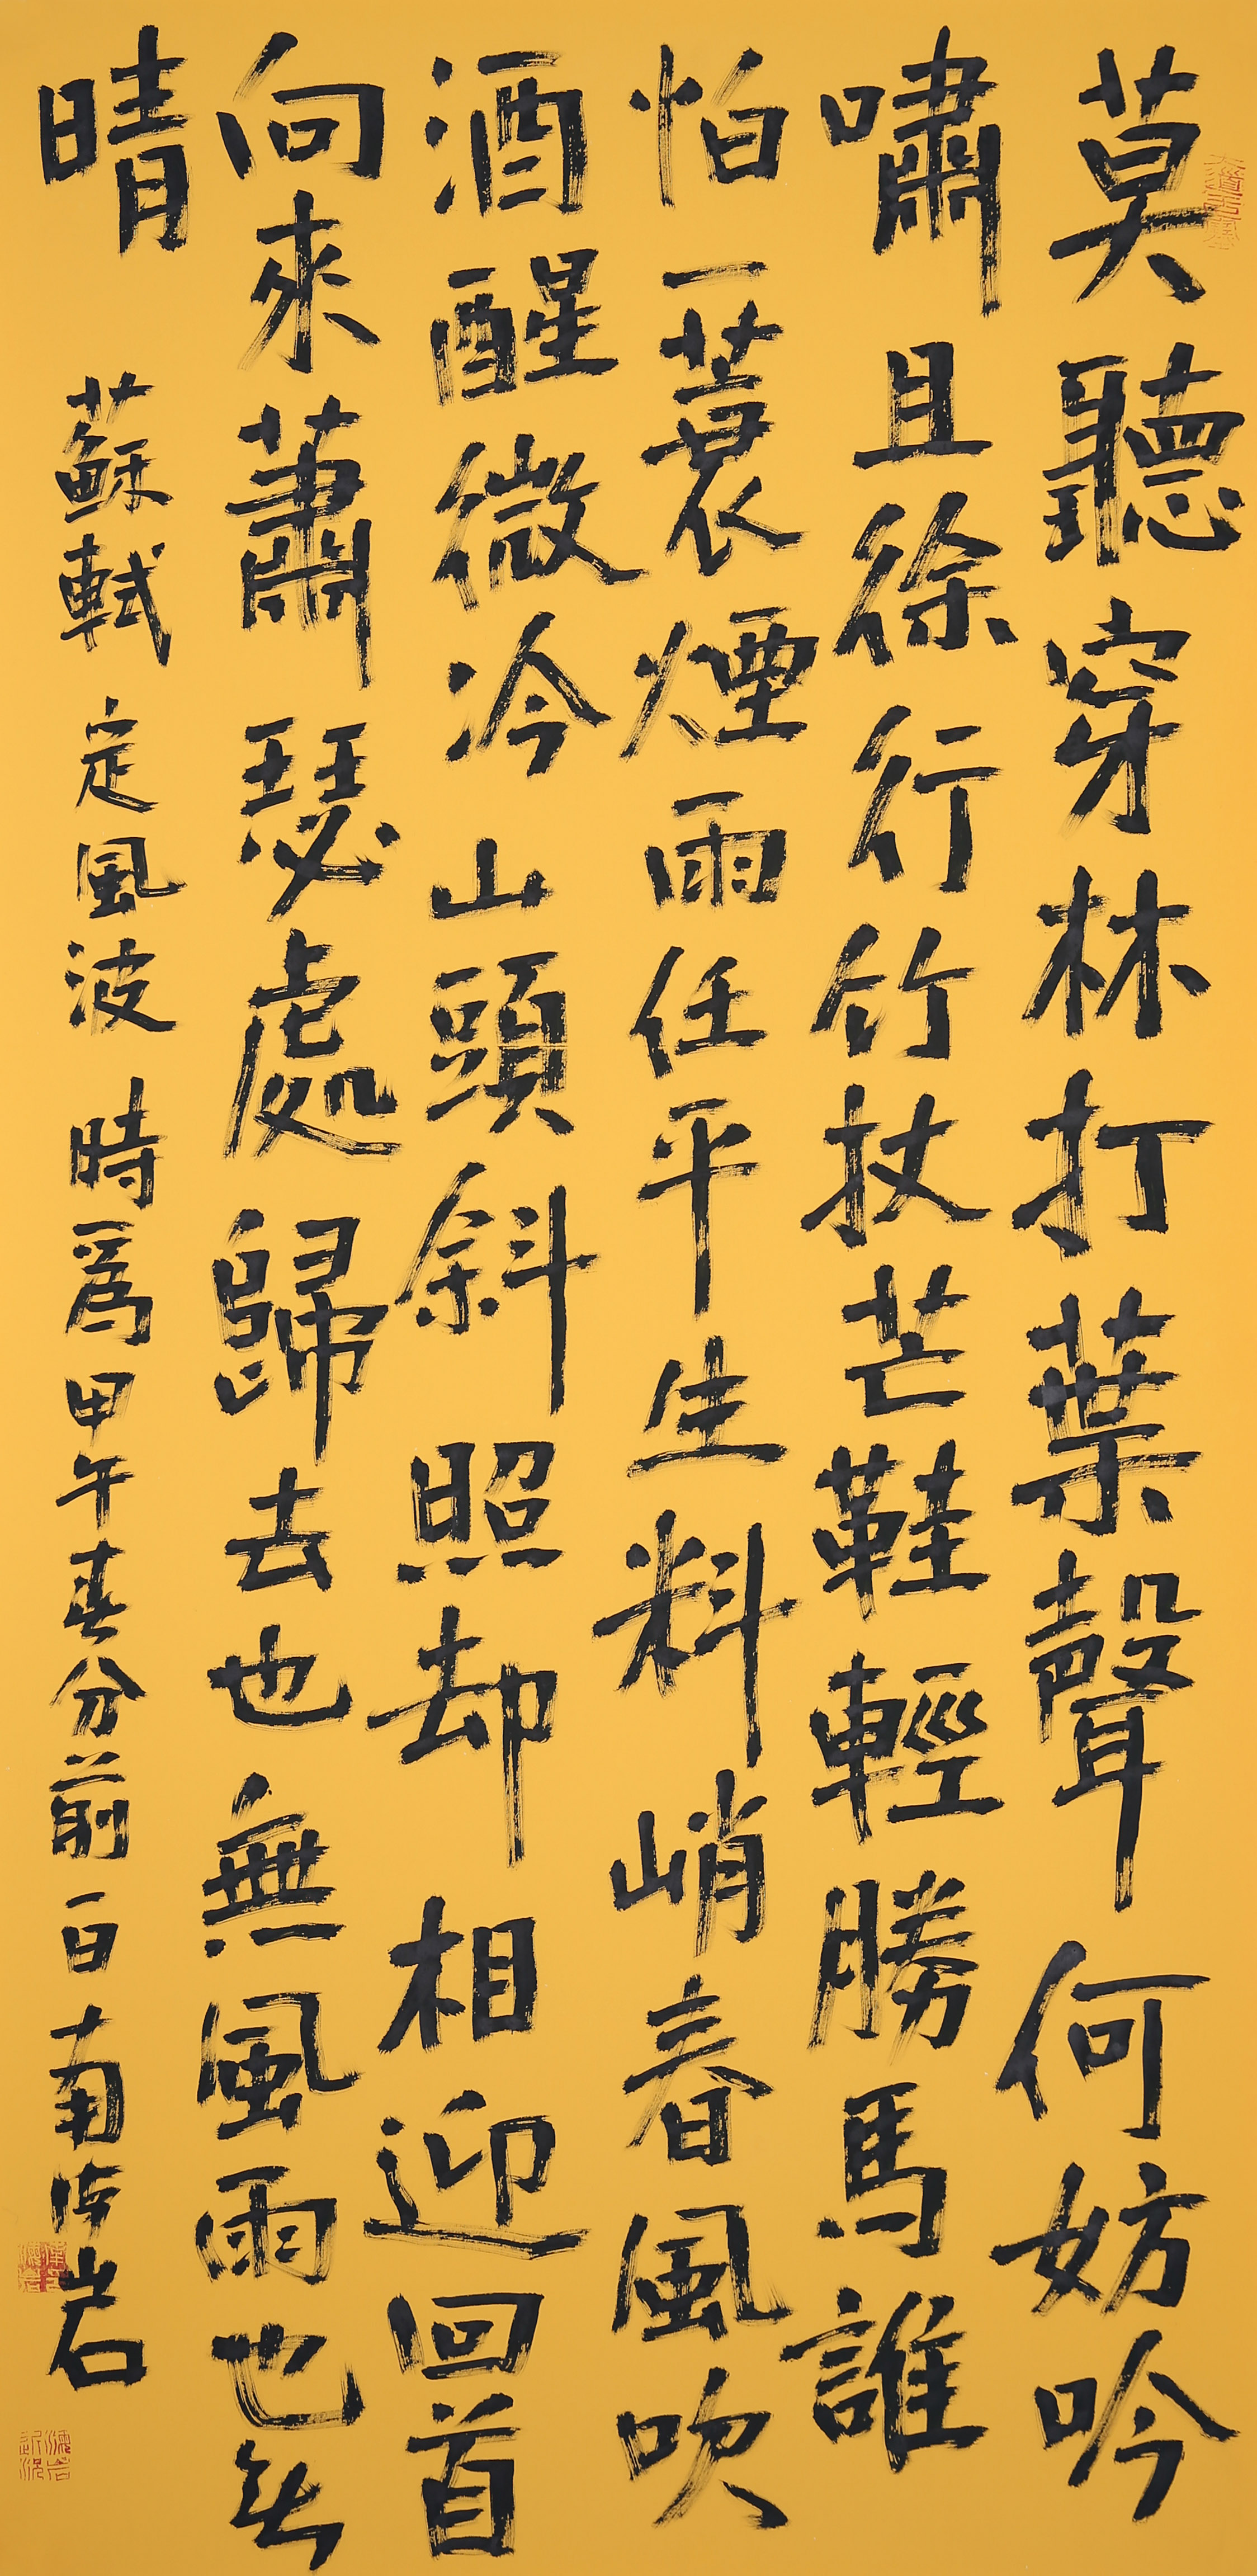 莫聽穿林打葉聲何妨吟
嘯且徐行竹杖芒鞋輕勝馬誰
怕一蓑煙雨任平生料峭春風吹
酒醒微冷山頭斜照却相迎回首
向來蕭瑟處歸去也無風雨也無
晴
蘇軾定風波時爲甲午春分前一日南海岩